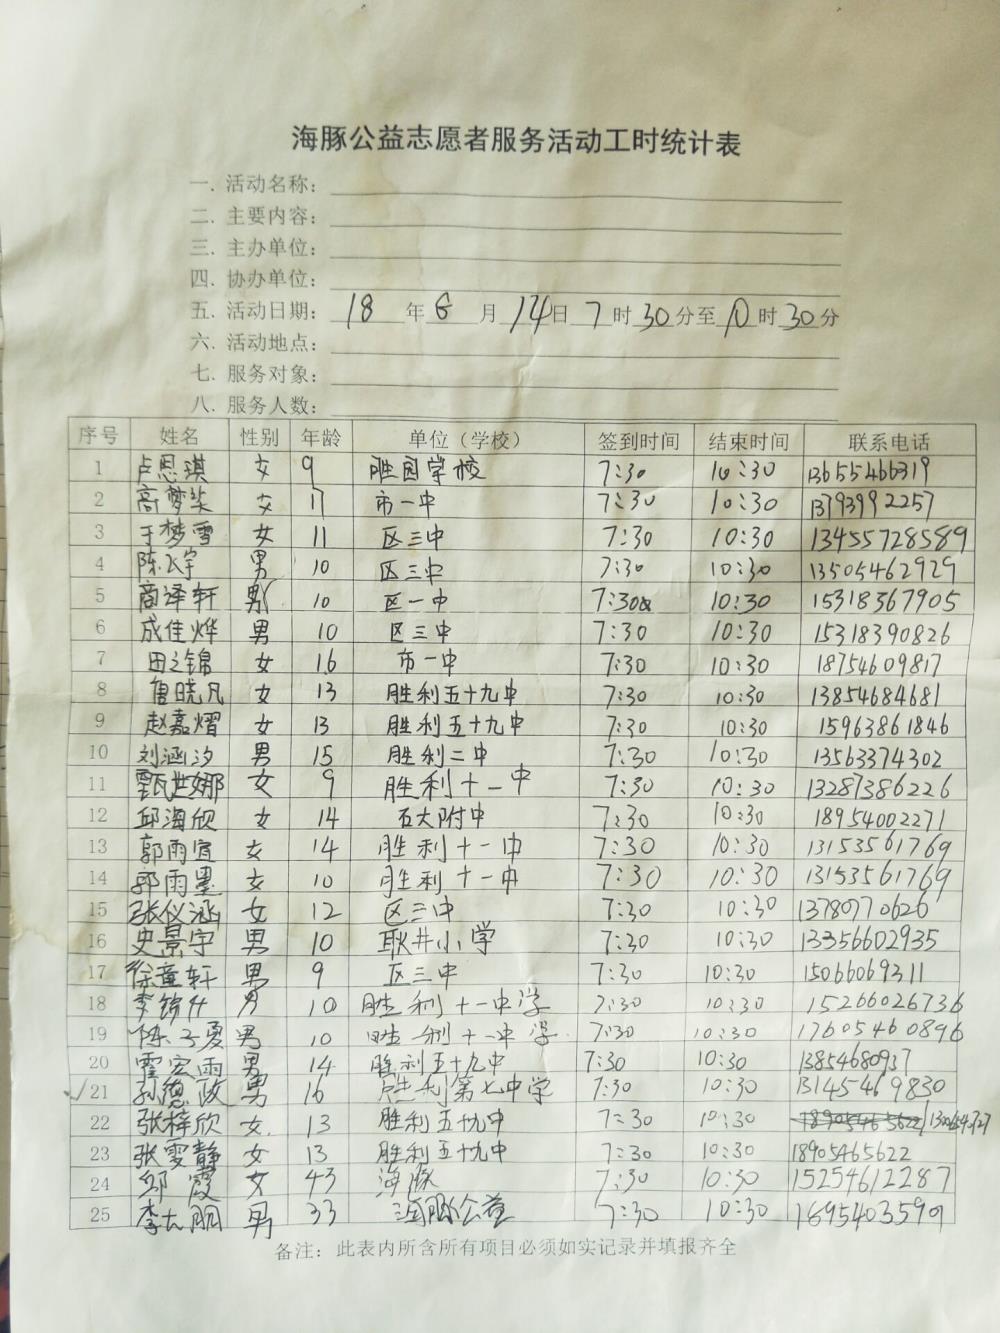 海豚公益志愿者服务活动工时统计表
一. 活动名称：
二. 主要内容：
三. 主办单位：
四. 协办单位：
五. 活动日期： 18 年 6 月 14 日 7 时 30 分至 10 时 30 分
六. 活动地点：
七. 服务对象：
八. 服务人数：
序号 姓名 性别 年龄 单位（学校） 签到时间 结束时间 联系电话
1 卢恩琪 女 9 胜园学校 7:30 10:30 13655466319
2 高梦 女 11 市一中 7:30 10:30 13793992257
3 于梦雪 女 11 区三中 7:30 10:30 13455728589
4 陈飞宇 男 10 区三中 7:30 10:30 13505462929
5 商泽轩 男 10 区一中 7:30 10:30 15318367905
6 成佳烨 男 10 区三中 7:30 10:30 15318390826
7 田之锦 女 16 市一中 7:30 10:30 18754609817
8 鲁晓凡 女 13 胜利五十九中 7:30 10:30 13854684681
9 赵嘉熠 女 13 胜利五十九中 7:30 10:30 15963861846
10 刘涵汐 男 15 胜利二中 7:30 10:30 13563374302
11 甄世娜 女 9 胜利十一中 7:30 10:30 13287386226
12 邱海欣 女 14 五大附中 7:30 10:30 18954002271
13 郭雨宜 女 14 胜利十一中 7:30 10:30 13153561769
14 郭雨墨 女 10 胜利十一中 7:30 10:30 13153561769
15 张仪涵 女 12 区三中 7:30 10:30 13780770626
16 史景宇 男 10 耿井小学 7:30 10:30 13356602935
17 徐童轩 男 9 区三中 7:30 10:30 15066069311
18 李锦 男 10 胜利十一中学 7:30 10:30 15266026736
19 陈子夏 男 10 胜利十一中学 7:30 10:30 17605460896
20 霍宏雨 男 14 胜利五十九中 7:30 10:30 13854680937
✓ 21 孙德政 男 16 胜利第七中学 7:30 10:30 13145469830
22 张梓欣 女 13 胜利五十九中 7:30 10:30 18905465622
23 张雯静 女 13 胜利五十九中 7:30 10:30 18905465622
24 邱霞 女 43 海豚 7:30 10:30 15254612287
25 李大鹏 男 33 海豚公益 7:30 10:30 16954035909
备注：此表内所含所有项目必须如实记录并填报齐全